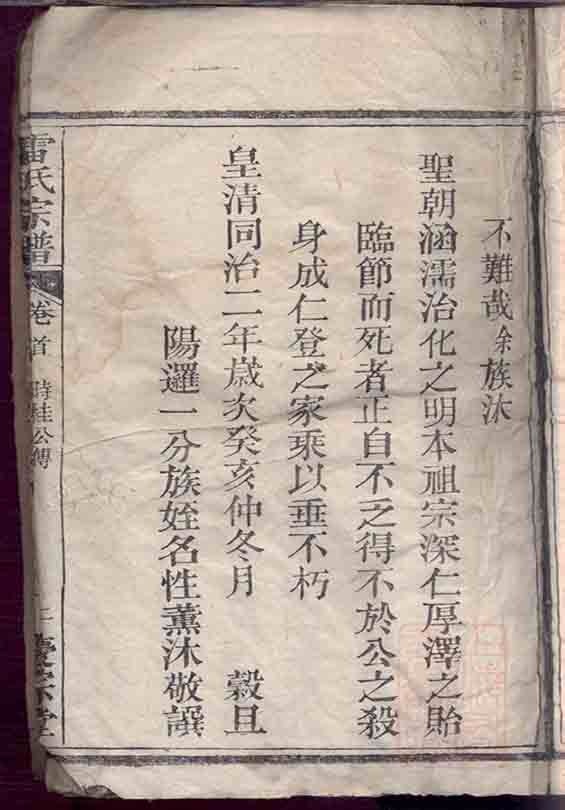 不難哉余族沐
聖朝涵濡治化之明本祖宗深仁厚澤之貽
臨節而死者正自不乏得不於公之殺
身成仁登之家乘以垂不朽
皇清同治二年歲次癸亥仲冬月 穀旦
陽邏一分族姪名性薰沐敬譔
雷氏宗譜 卷首 時桂公傳